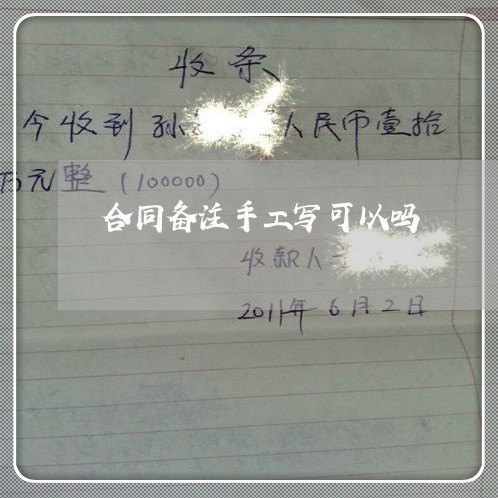 收条
今收到孙 人民币壹拾
万元整(100000)
合同备注手工写可以吗
收款人
2011年6月2日